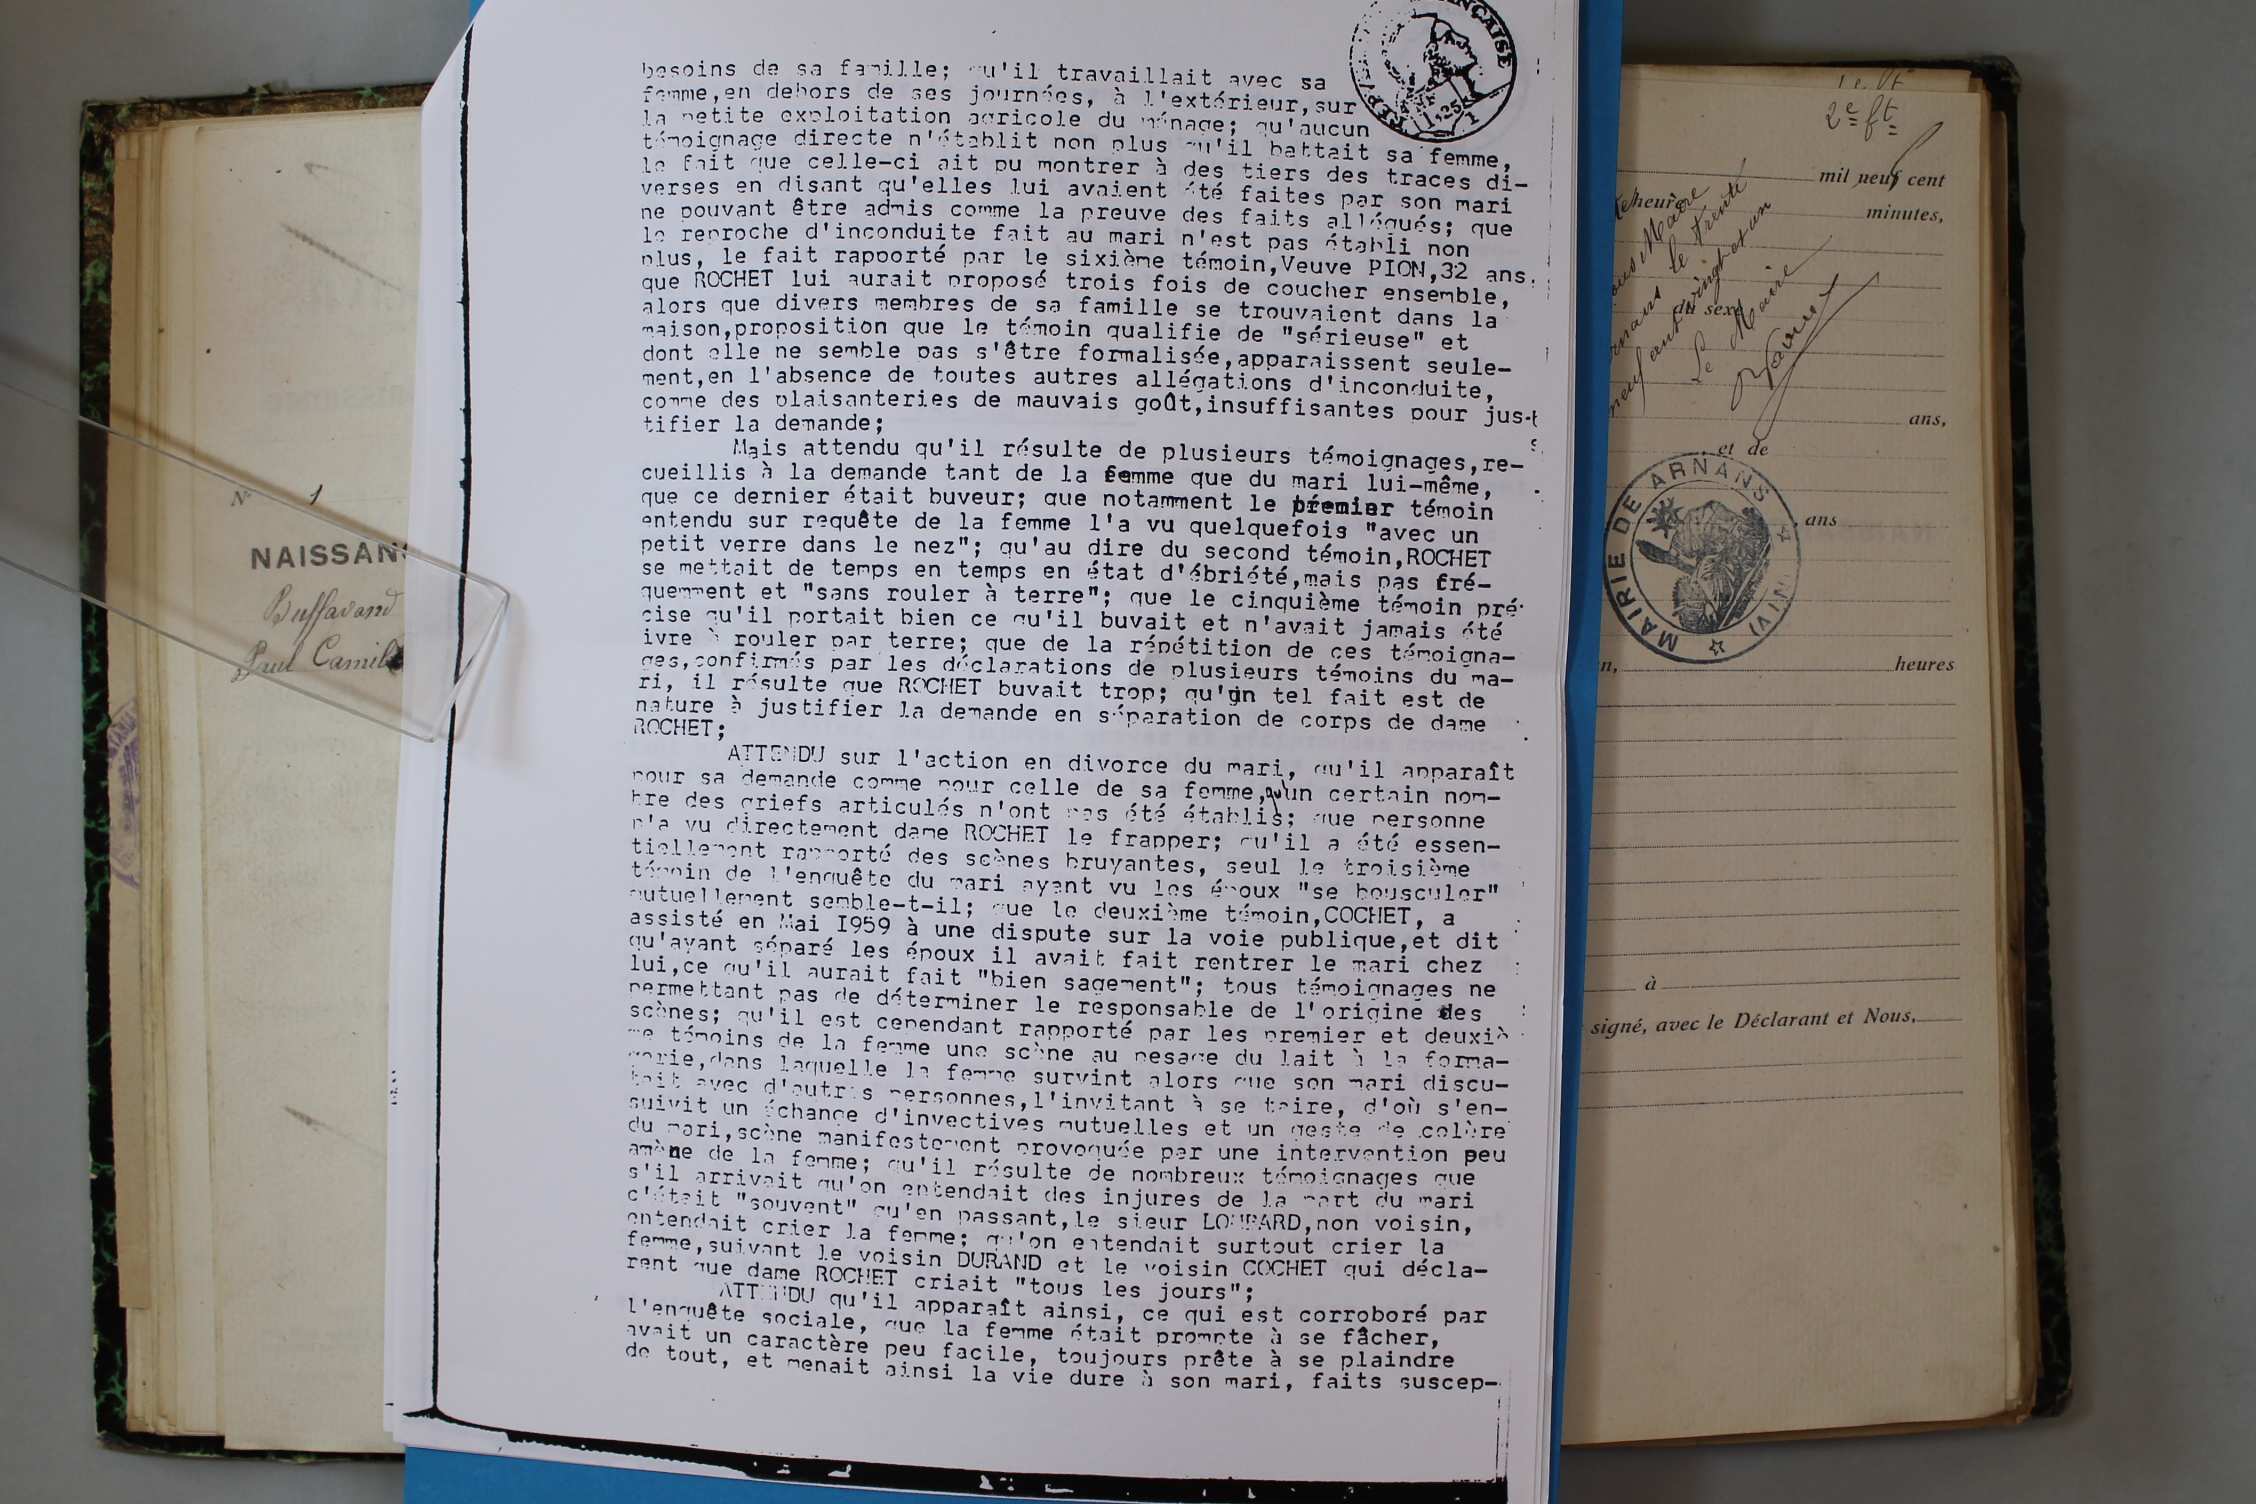 N° 1
NAISSAN
Buffavand
Paul Camil
FRANÇAISE
besoins de sa famille; qu'il travaillait avec sa
femme,en dehors de ses journées, à l'extérieur,sur
la petite exploitation agricole du ménage; qu'aucun
témoignage directe n'établit non plus qu'il battait sa femme,
le fait que celle-ci ait pu montrer à des tiers des traces di-
verses en disant qu'elles lui avaient été faites par son mari
ne pouvant être admis comme la preuve des faits allégués; que
le reproche d'inconduite fait au mari n'est pas établi non
plus, le fait rapporté par le sixième témoin,Veuve PION,32 ans,
que ROCHET lui aurait proposé trois fois de coucher ensemble,
alors que divers membres de sa famille se trouvaient dans la
maison,proposition que le témoin qualifie de "sérieuse" et
dont elle ne semble pas s'être formalisée,apparaissent seule-
ment,en l'absence de toutes autres allégations d'inconduite,
comme des plaisanteries de mauvais goût,insuffisantes pour jus-
tifier la demande;
Mais attendu qu'il résulte de plusieurs témoignages,re-
cueillis à la demande tant de la femme que du mari lui-même,
que ce dernier était buveur; que notamment le premier témoin
entendu sur requête de la femme l'a vu quelquefois "avec un
petit verre dans le nez"; qu'au dire du second témoin,ROCHET
se mettait de temps en temps en état d'ébriété,mais pas fré-
quemment et "sans rouler à terre"; que le cinquième témoin pré-
cise qu'il portait bien ce qu'il buvait et n'avait jamais été
ivre à rouler par terre; que de la répétition de ces témoigna-
ges,confirmés par les déclarations de plusieurs témoins du ma-
ri, il résulte que ROCHET buvait trop; qu'un tel fait est de
nature à justifier la demande en séparation de corps de dame
ROCHET;
ATTENDU sur l'action en divorce du mari, qu'il apparaît
pour sa demande comme pour celle de sa femme,qu'un certain nom-
bre des griefs articulés n'ont pas été établis; que personne
n'a vu directement dame ROCHET le frapper; qu'il a été essen-
tiellement rapporté des scènes bruyantes, seul le troisième
témoin de l'enquête du mari ayant vu les époux "se bousculer"
mutuellement semble-t-il; que le deuxième témoin,COCHET, a
assisté en Mai I959 à une dispute sur la voie publique,et dit
qu'ayant séparé les époux il avait fait rentrer le mari chez
lui,ce qu'il aurait fait "bien sagement"; tous témoignages ne
permettant pas de déterminer le responsable de l'origine des
scènes; qu'il est cependant rapporté par les premier et deuxiè
me témoins de la femme une scène au pesage du lait à la forma-
gerie,dans laquelle la femme survint alors que son mari discu-
tait avec d'autres personnes,l'invitant à se taire, d'où s'en-
suivit un échange d'invectives mutuelles et un geste de colère
du mari,scène manifestement provoquée par une intervention peu
amène de la femme; qu'il résulte de nombreux témoignages que
s'il arrivait qu'on entendait des injures de la part du mari
c'était "souvent" qu'en passant,le sieur LOUPARD,non voisin,
entendait crier la femme; qu'on entendait surtout crier la
femme,suivant le voisin DURAND et le voisin COCHET qui décla-
rent que dame ROCHET criait "tous les jours";
ATTENDU qu'il apparaît ainsi, ce qui est corroboré par
l'enquête sociale, que la femme était prompte à se fâcher,
avait un caractère peu facile, toujours prête à se plaindre
de tout, et menait ainsi la vie dure à son mari, faits suscep-
2e ft
mil neuf cent
heure
minutes,
Maire
le trente
vingt et un
du sexe
Le Maire
ans,
et de
MAIRIE DE ARNANS (AIN)
, ans
n, heures
à
signé, avec le Déclarant et Nous,